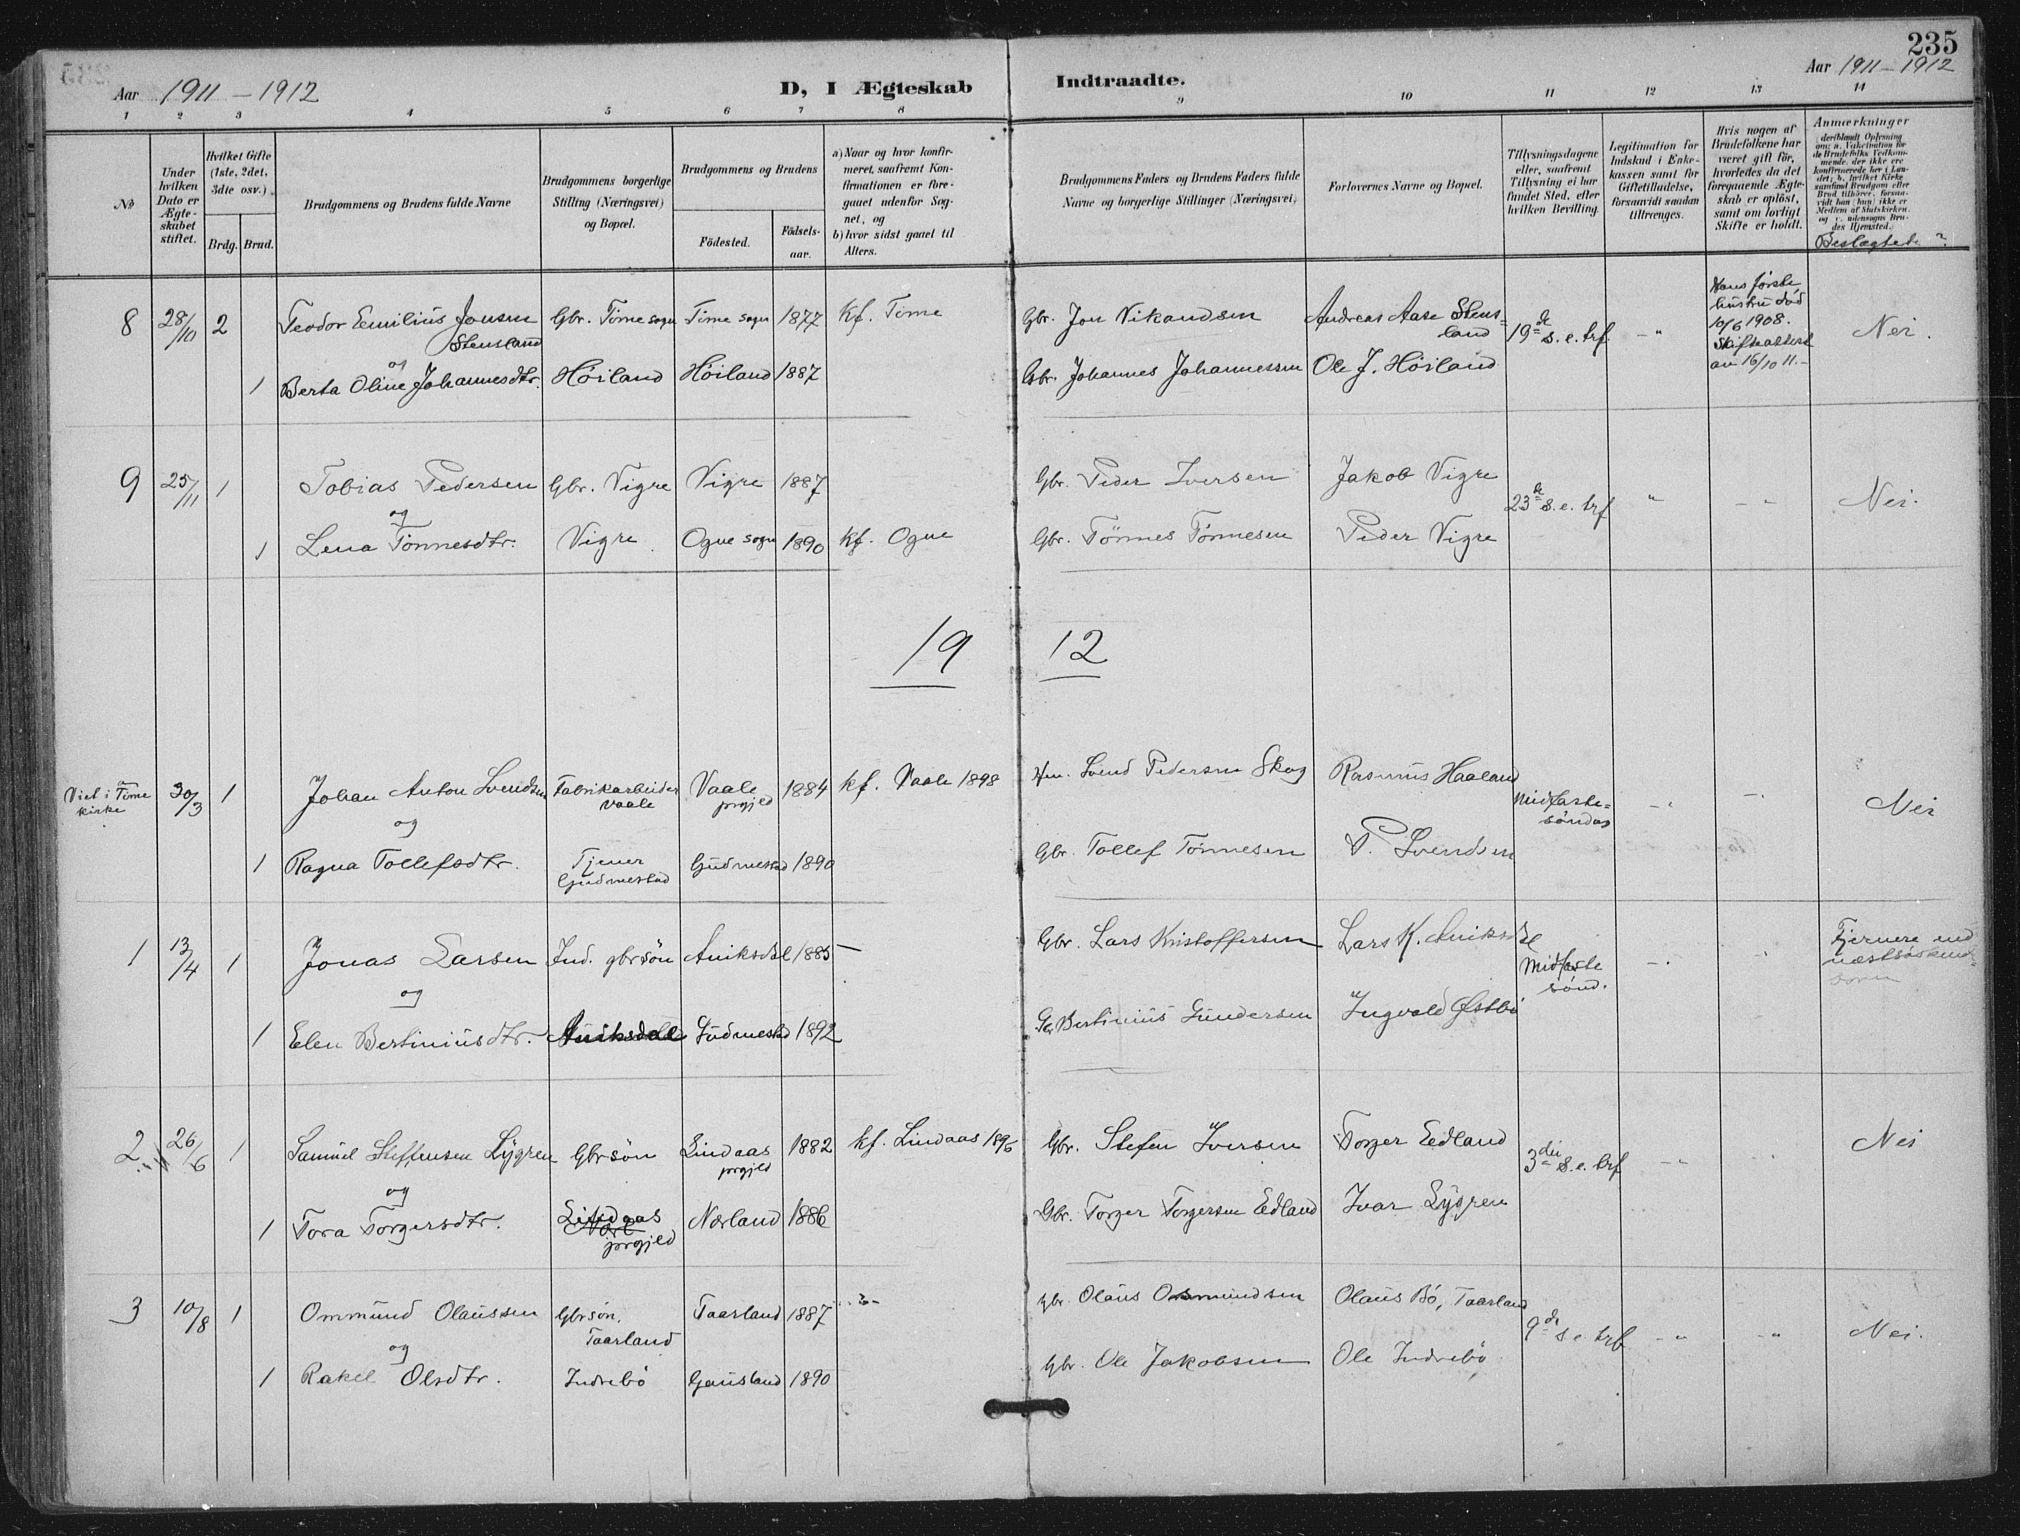 235
Aar 1911 – 1912
D, I Ægteskab Indtraadte.
Aar 1911 – 1912
1 2 3 4 5 6 7 8 9 10 11 12 13 14
No
Under hvilken Dato er Ægteskabet stiftet.
Hvilket Gifte (1ste, 2det, 3die osv.)
Brdg. Brud.
Brudgommens og Brudens fulde Navne
Brudgommens borgerlige Stilling (Næringsvei) og Bopæl.
Brudgommens og Brudens
Födested.
Födselsaar.
a) Naar og hvor konfirmeret, saafremt Konfirmationen er foregaaet udenfor Sognet, og
b) hvor sidst gaaet til Alters.
Brudgommens Faders og Brudens Faders fulde Navne og borgerlige Stillinger (Næringsvei)
Forlovernes Navne og Bopæl.
Tillysningsdagene eller, saafremt Tillysning ei har fundet Sted, efter hvilken Bevilling.
Legitimation for Indskud i Enkekassen samt for Giftetilladelse, forsaavidt saadan tiltrænges.
Hvis nogen af Brudefolkene har været gift för, hvorledes da det foregaaende Ægteskab er oplöst, samt om lovligt Skifte er holdt.
Anmærkninger
Beslægtede?
8 28/10 2 Teodor Emilius Jonsen Stensland Gbr. Time sogn Time sogn 1877 kf. Time Gbr. Jon Nikandsen Andreas Aase Stensland 19de s. e. trf. -"- Hans første hustru død 10/6 1908. Skifteattest av 16/10 11.- Nei.
og
1 Berta Oline Johannesdtr. Høiland Høiland 1887 Gbr. Johannes Johannessen Ole J. Høiland
9 25/11 1 Tobias Pedersen Gbr. Vigre Vigre 1887 Gbr. Peder Iversen Jakob Vigre 23de s. e. trf " -"- Nei.
og
1 Lena Tönnesdtr. Vigre Ogne sogn 1890 kf. Ogne Gbr. Tönnes Tönnesen Peder Vigre
19 12
Viet i Time kirke 30/3 1 Johan Anton Svendsen Fabrikarbeider Vaale Vaale prgjld 1884 kf. Vaale 1898 Hm. Svend Pedersen Skog Rasmus Haaland Midfastesöndag -"- -"- Nei
og
1 Ragna Tollefsdtr. Tjener Gudmestad Gudmestad 1890 Gbr. Tollef Tönnesen P. Svendsen
1 13/4 1 Jonas Larsen Ind. gbrsön Aniksdal 1885 – Gbr. Lars Kristoffersen Lars K. Aniksdal Midfaste sönd. -"- " Fjernere end næstsöskendebörn
og
1 Elen Bertiniusdtr. Aniksdal Gudmestad 1892 Gbr Bertinius Gundersen Ingvald Østbö
2 26/6 1 Samuel Steffensen Lygren Gbrsön Lindaas prgjld 1882 kf. Lindaas 1896 Gbr. Stefen Iversen Torger Edland 3die s. e. trf -"- -"- Nei
og
1 Tora Torgersdtr. Lindaas prgjld Nærland 1886 Gbr. Torger Torgersen Edland Ivar Lygren
3 10/8 1 Ommund Olaussen Gbrsön, Taarland Taarland 1887 -"- Gbr. Olaus Osmundsen Olaus Bö, Taarland 9de s. e. trf -"- -"- Nei.
og
1 Rakel Olsdtr. Indrebö Gausland 1890 Gbr. Ole Jakobsen Ole Indrebö